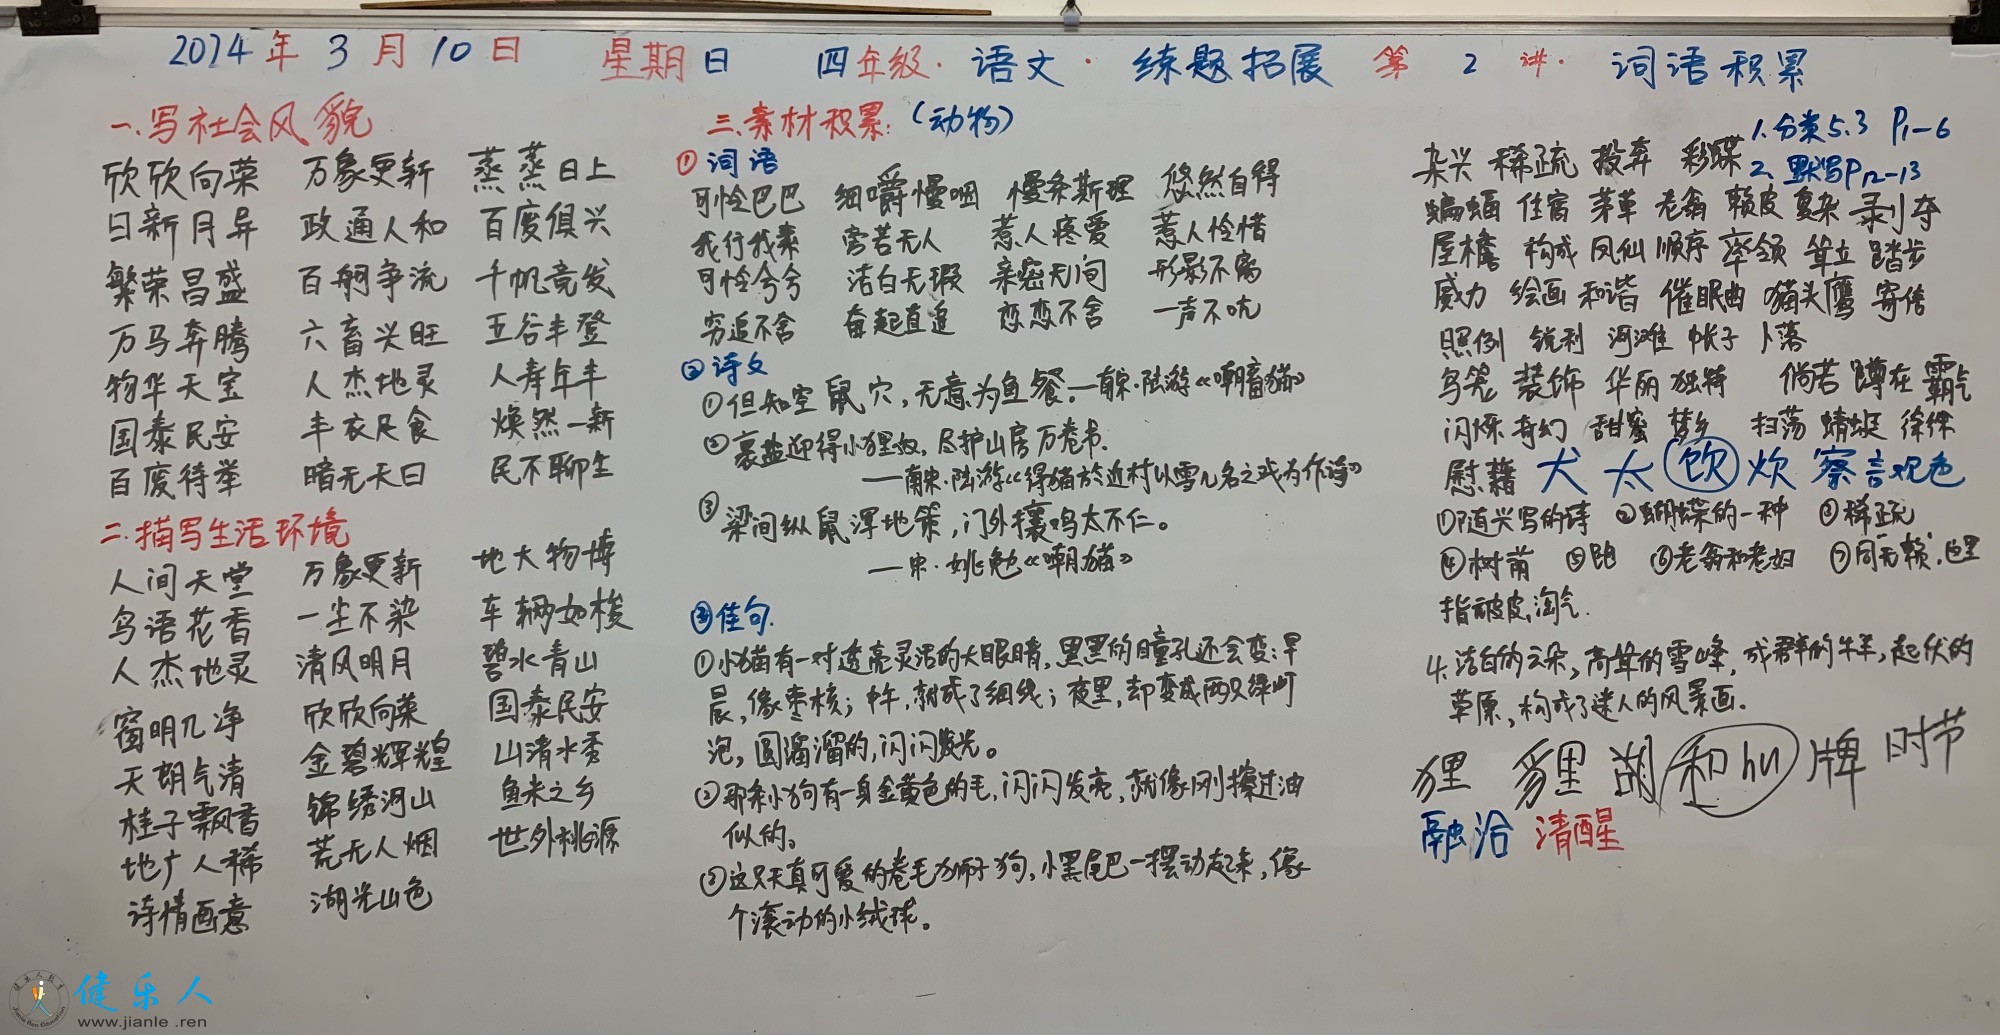 2024年3月10日 星期日 四年级·语文·练题拓展 第2讲·词语积累
一、写社会风貌
欣欣向荣 万象更新 蒸蒸日上
日新月异 政通人和 百废俱兴
繁荣昌盛 百舸争流 千帆竞发
万马奔腾 六畜兴旺 五谷丰登
物华天宝 人杰地灵 人寿年丰
国泰民安 丰衣足食 焕然一新
百废待举 暗无天日 民不聊生
二.描写生活环境
人间天堂 万象更新 地大物博
鸟语花香 一尘不染 车辆如梭
人杰地灵 清风明月 碧水青山
窗明几净 欣欣向荣 国泰民安
天朗气清 金碧辉煌 山清水秀
桂子飘香 锦绣河山 鱼米之乡
地广人稀 荒无人烟 世外桃源
诗情画意 湖光山色
三、素材积累:(动物)
①词语
可怜巴巴 细嚼慢咽 慢条斯理 悠然自得
我行我素 旁若无人 惹人疼爱 惹人怜惜
可怜兮兮 洁白无瑕 亲密无间 形影不离
穷追不舍 奋起直追 恋恋不舍 一声不吭
②诗文
①但知空鼠穴,无意为鱼餐。—南宋·陆游《嘲畜猫》
②裹盐迎得小狸奴,尽护山房万卷书.
——南宋·陆游《得猫於近村以雪儿名之戏为作诗》
③梁间纵鼠浑地策,门外攘鸡太不仁。
——宋·姚勉《嘲猫》
③佳句.
①小猫有一对透亮灵活的大眼睛,黑黑的瞳孔还会变:早
晨,像枣核;中午,就成了细线;夜里,却变成两只绿灯
泡,圆溜溜的,闪闪发光。
②那条小狗有一身金黄色的毛,闪闪发亮,就像刚擦过油
似的。
③这只天真可爱的卷毛狮子狗,小黑尾巴一摆动起来,像
个滚动的小绒球。
1.分类5.3 P1-6
2.默写P12-13
杂兴 稀疏 投奔 彩蝶
蝙蝠 住宿 茅草 老翁 赖皮 复杂 剥夺
屋檐 构成 凤仙 顺序 率领 耸立 踏步
威力 绘画 和谐 催眠曲 猫头鹰 寄信
照例 锐利 河滩 帐子 卜落
鸟笼 装饰 华丽 独特 倘若 蹲在 霸气
闪烁 奇幻 甜蜜 梦乡 扫荡 蜻蜓 徐徐
慰藉 犬 太 饮 炊 察言观色
①随兴写的诗 ②蝴蝶的一种 ③稀疏
④树荫 ⑤ ⑥老翁和老妇 ⑦同"无赖",这里
指顽皮,淘气.
4.洁白的云朵,高耸的雪峰,成群的牛羊,起伏的
草原,构成了迷人的风景画.
狸 貍 湖 和hu 牌 时节
融洽 清醒
健乐人
www.jianle.ren